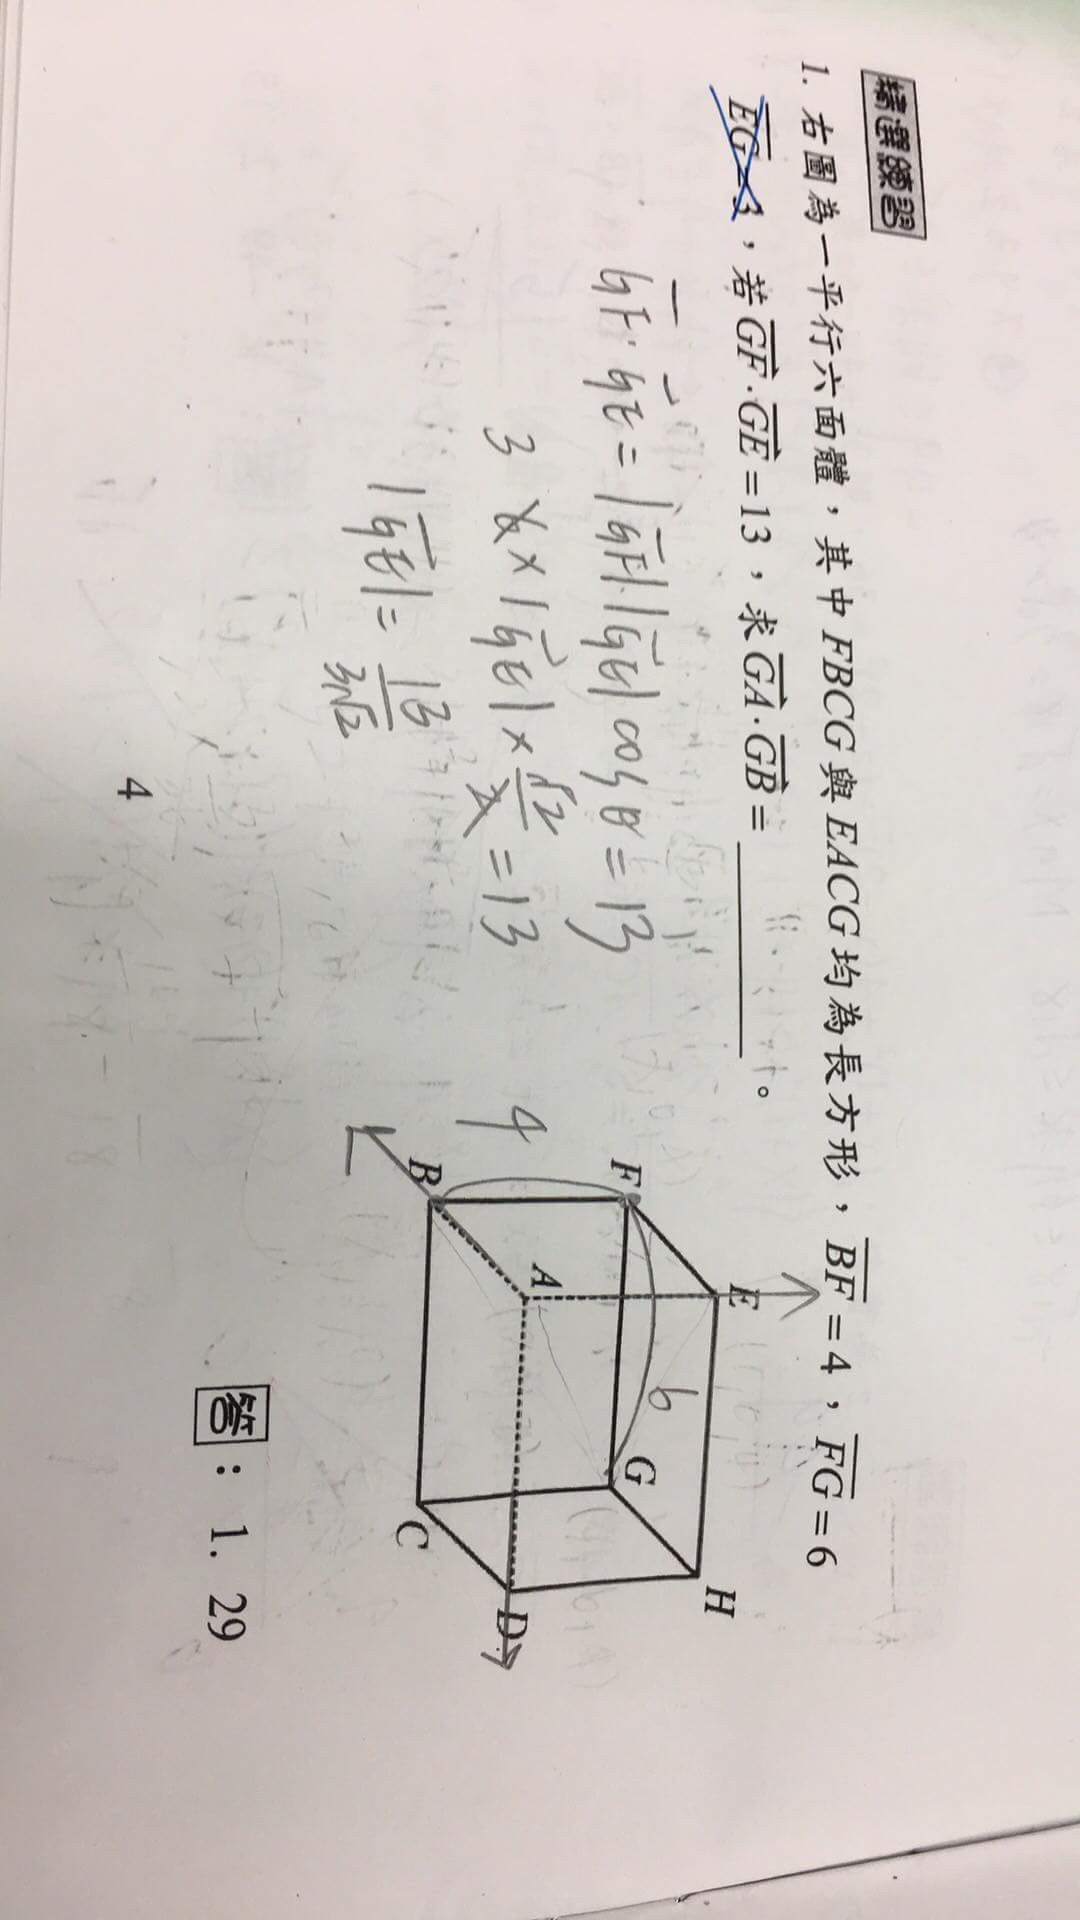 精選練習
1. 右圖為一平行六面體，其中FBCG與EACG均為長方形，BF=4，FG=6
EG=3，若GF·GE=13，求GA·GB=＿＿＿＿。
GF·GE=|GF|·|GE|cosθ=13
3 6×|GE|×√2/2=13
|GE|=13/3√2
4
6
E
F
G
H
A
B
C
D
答：1. 29
4